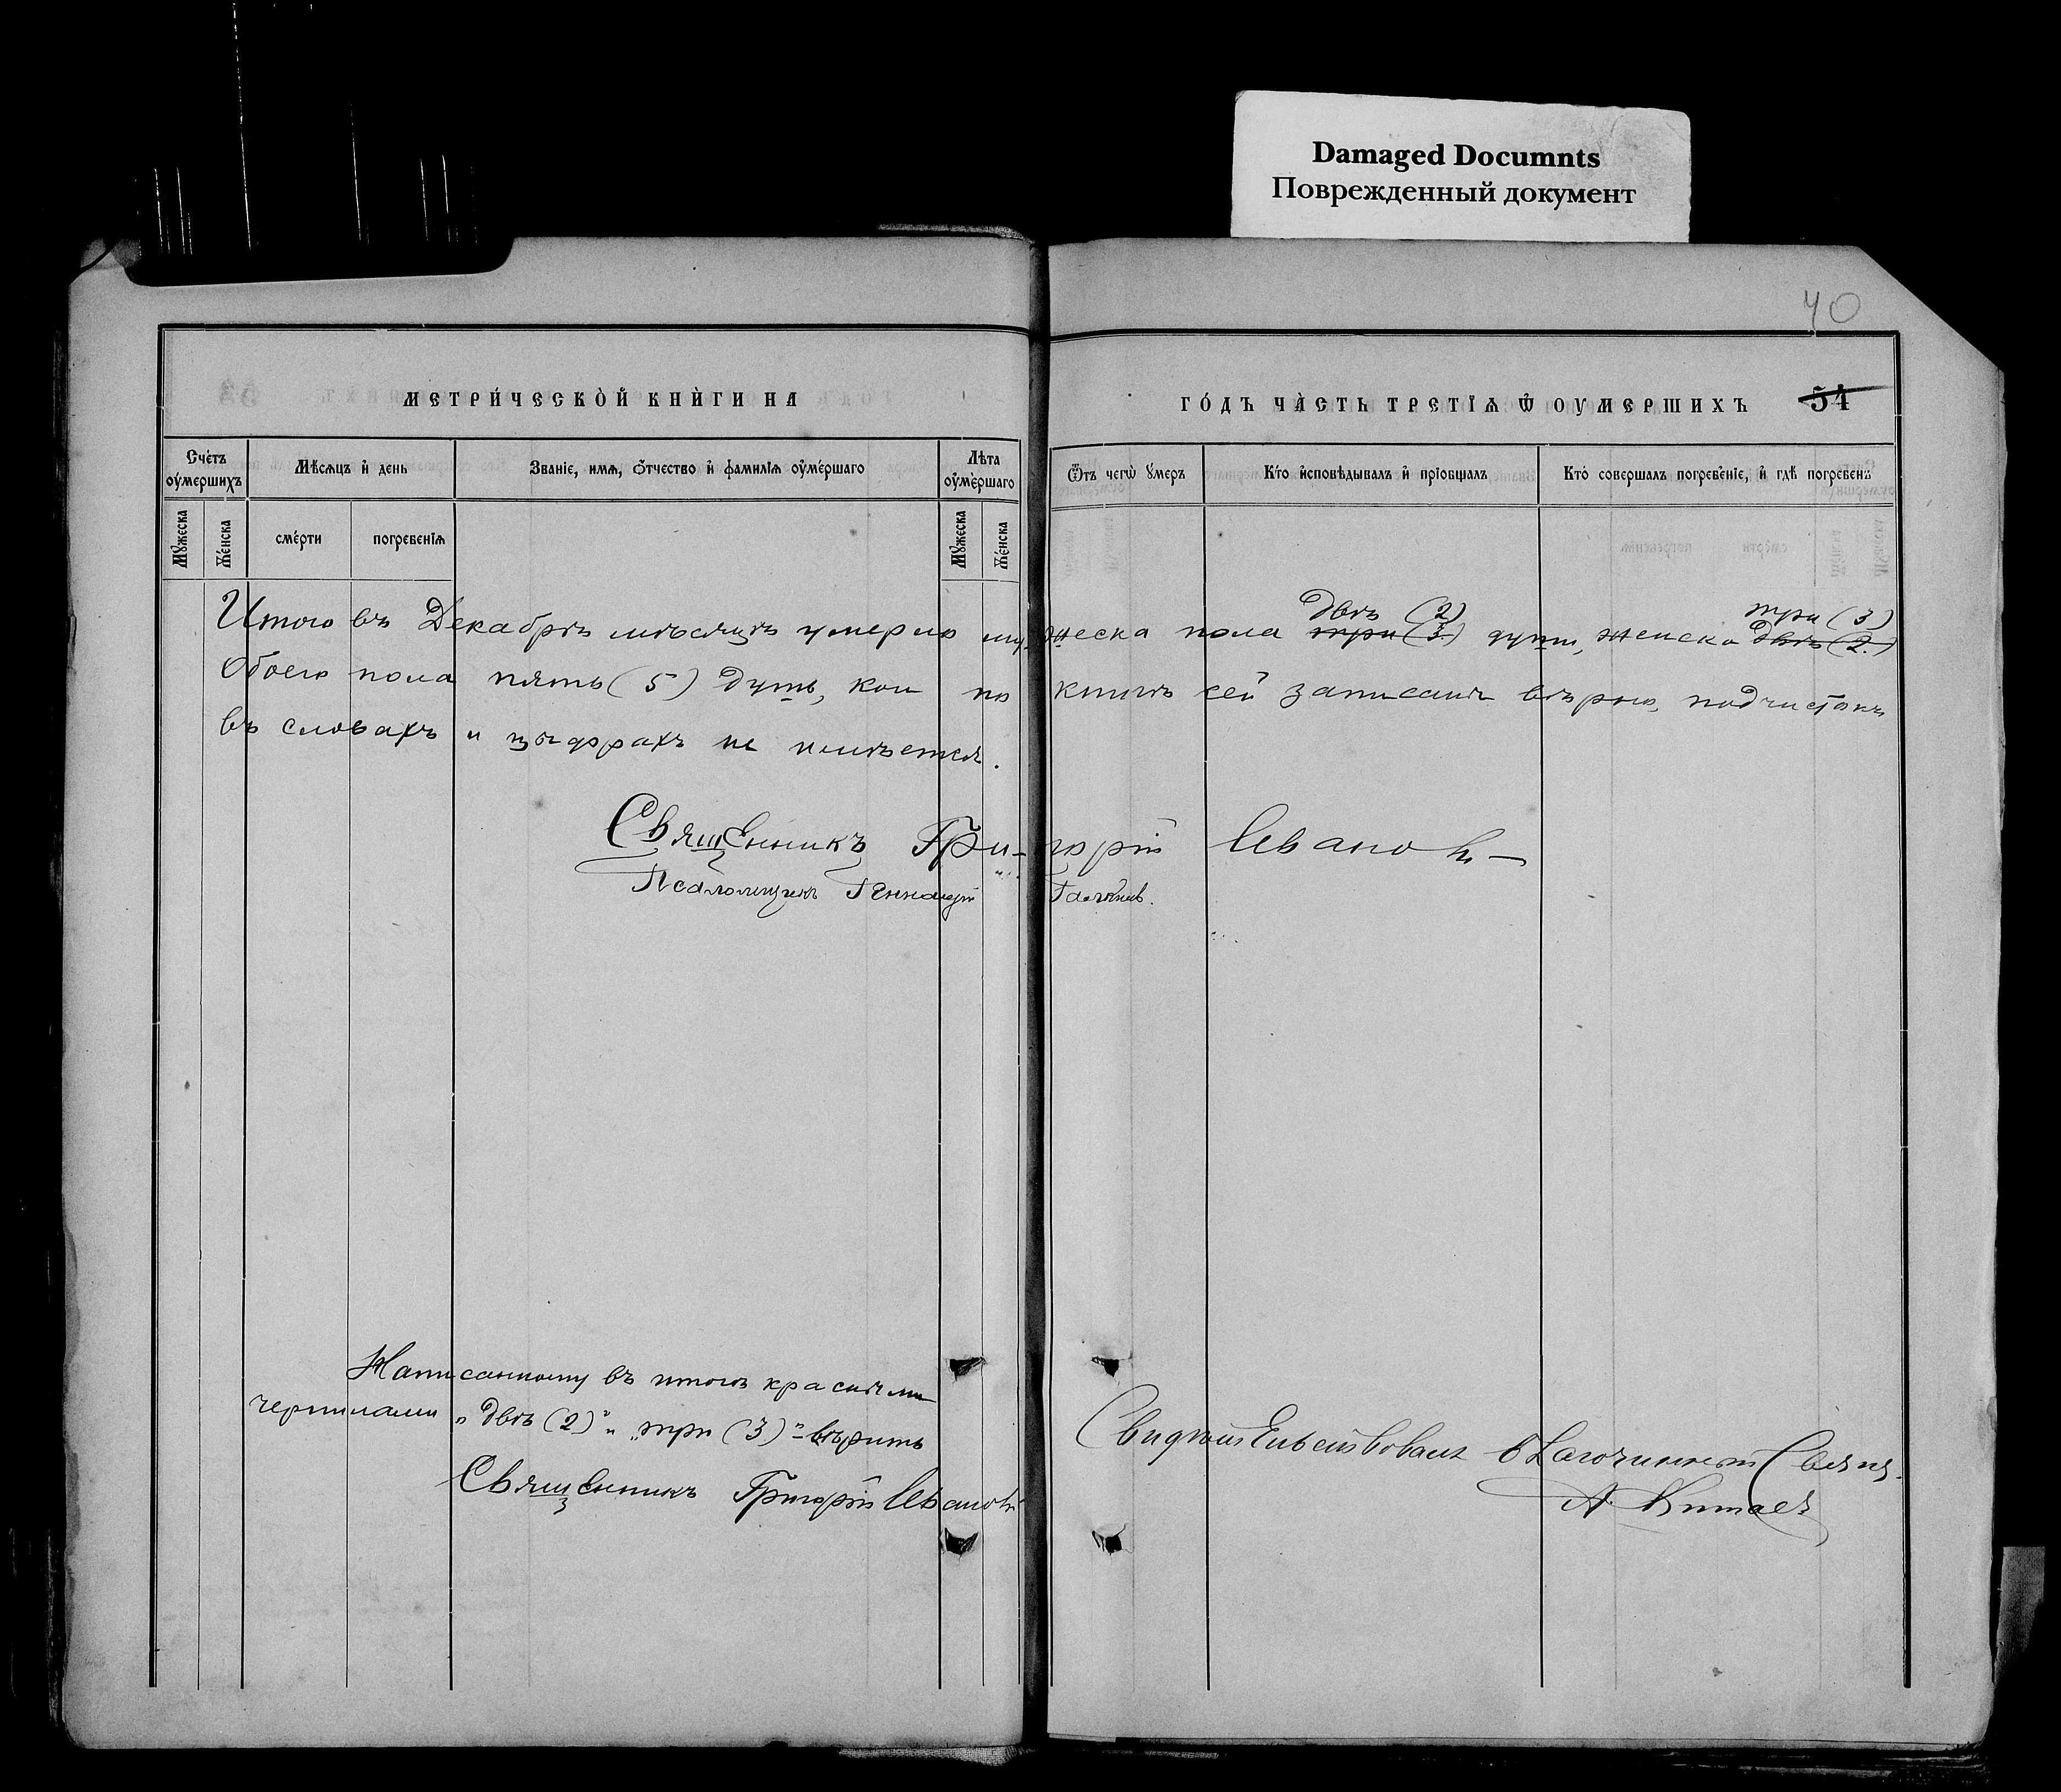 Damaged Documnts
Поврежденный документ
40
МЕТРИ́ЧЕСКО̀Й КНЍГИ НА
ГО́ДЪ ЧА̀СТЬ ТРЕТІѦ Ѿ ОУМЕРШИХЪ 54
Сче́тъ оу́мершихъ
Мѣ́сѧцъ и҆ день
Званіе, имѧ, ѻ҆́тчество и҆ фамилїѧ оу҆ме́ршаго
Лѣта оу҆ме́ршаго
Ѿтъ чегѡ̀ ꙋмеръ
Кто̀ и҆сповѣ́дывалъ и҆ прїобща́лъ
Кто́ совершалъ погребе́нїе, и҆ гдѣ̀ погребе́нъ
Мꙋ́жеска
Же́нска
сме́рти
погребе́нїѧ
Мꙋ́жеска
Же́нска
двѣ (2) три (3)
Итого въ Декабрѣ мѣсяцѣ умерло мужеска пола три (3.) души, женска двѣ (2.)
Обоего пола пять (5) душъ, кои по книгѣ сей записаны вѣрно, подчистокъ
въ словахъ и цыфрахъ не имѣется.
Священникъ Григорій Ивановъ
Псаломщикъ Геннадій
Написанному въ итогѣ красными
чернилами „двѣ (2)" и „три (3)" вѣрить
Священникъ Григорій Ивановъ
Свидѣтельствовалъ благочинный Свящ.
А. Китаевъ